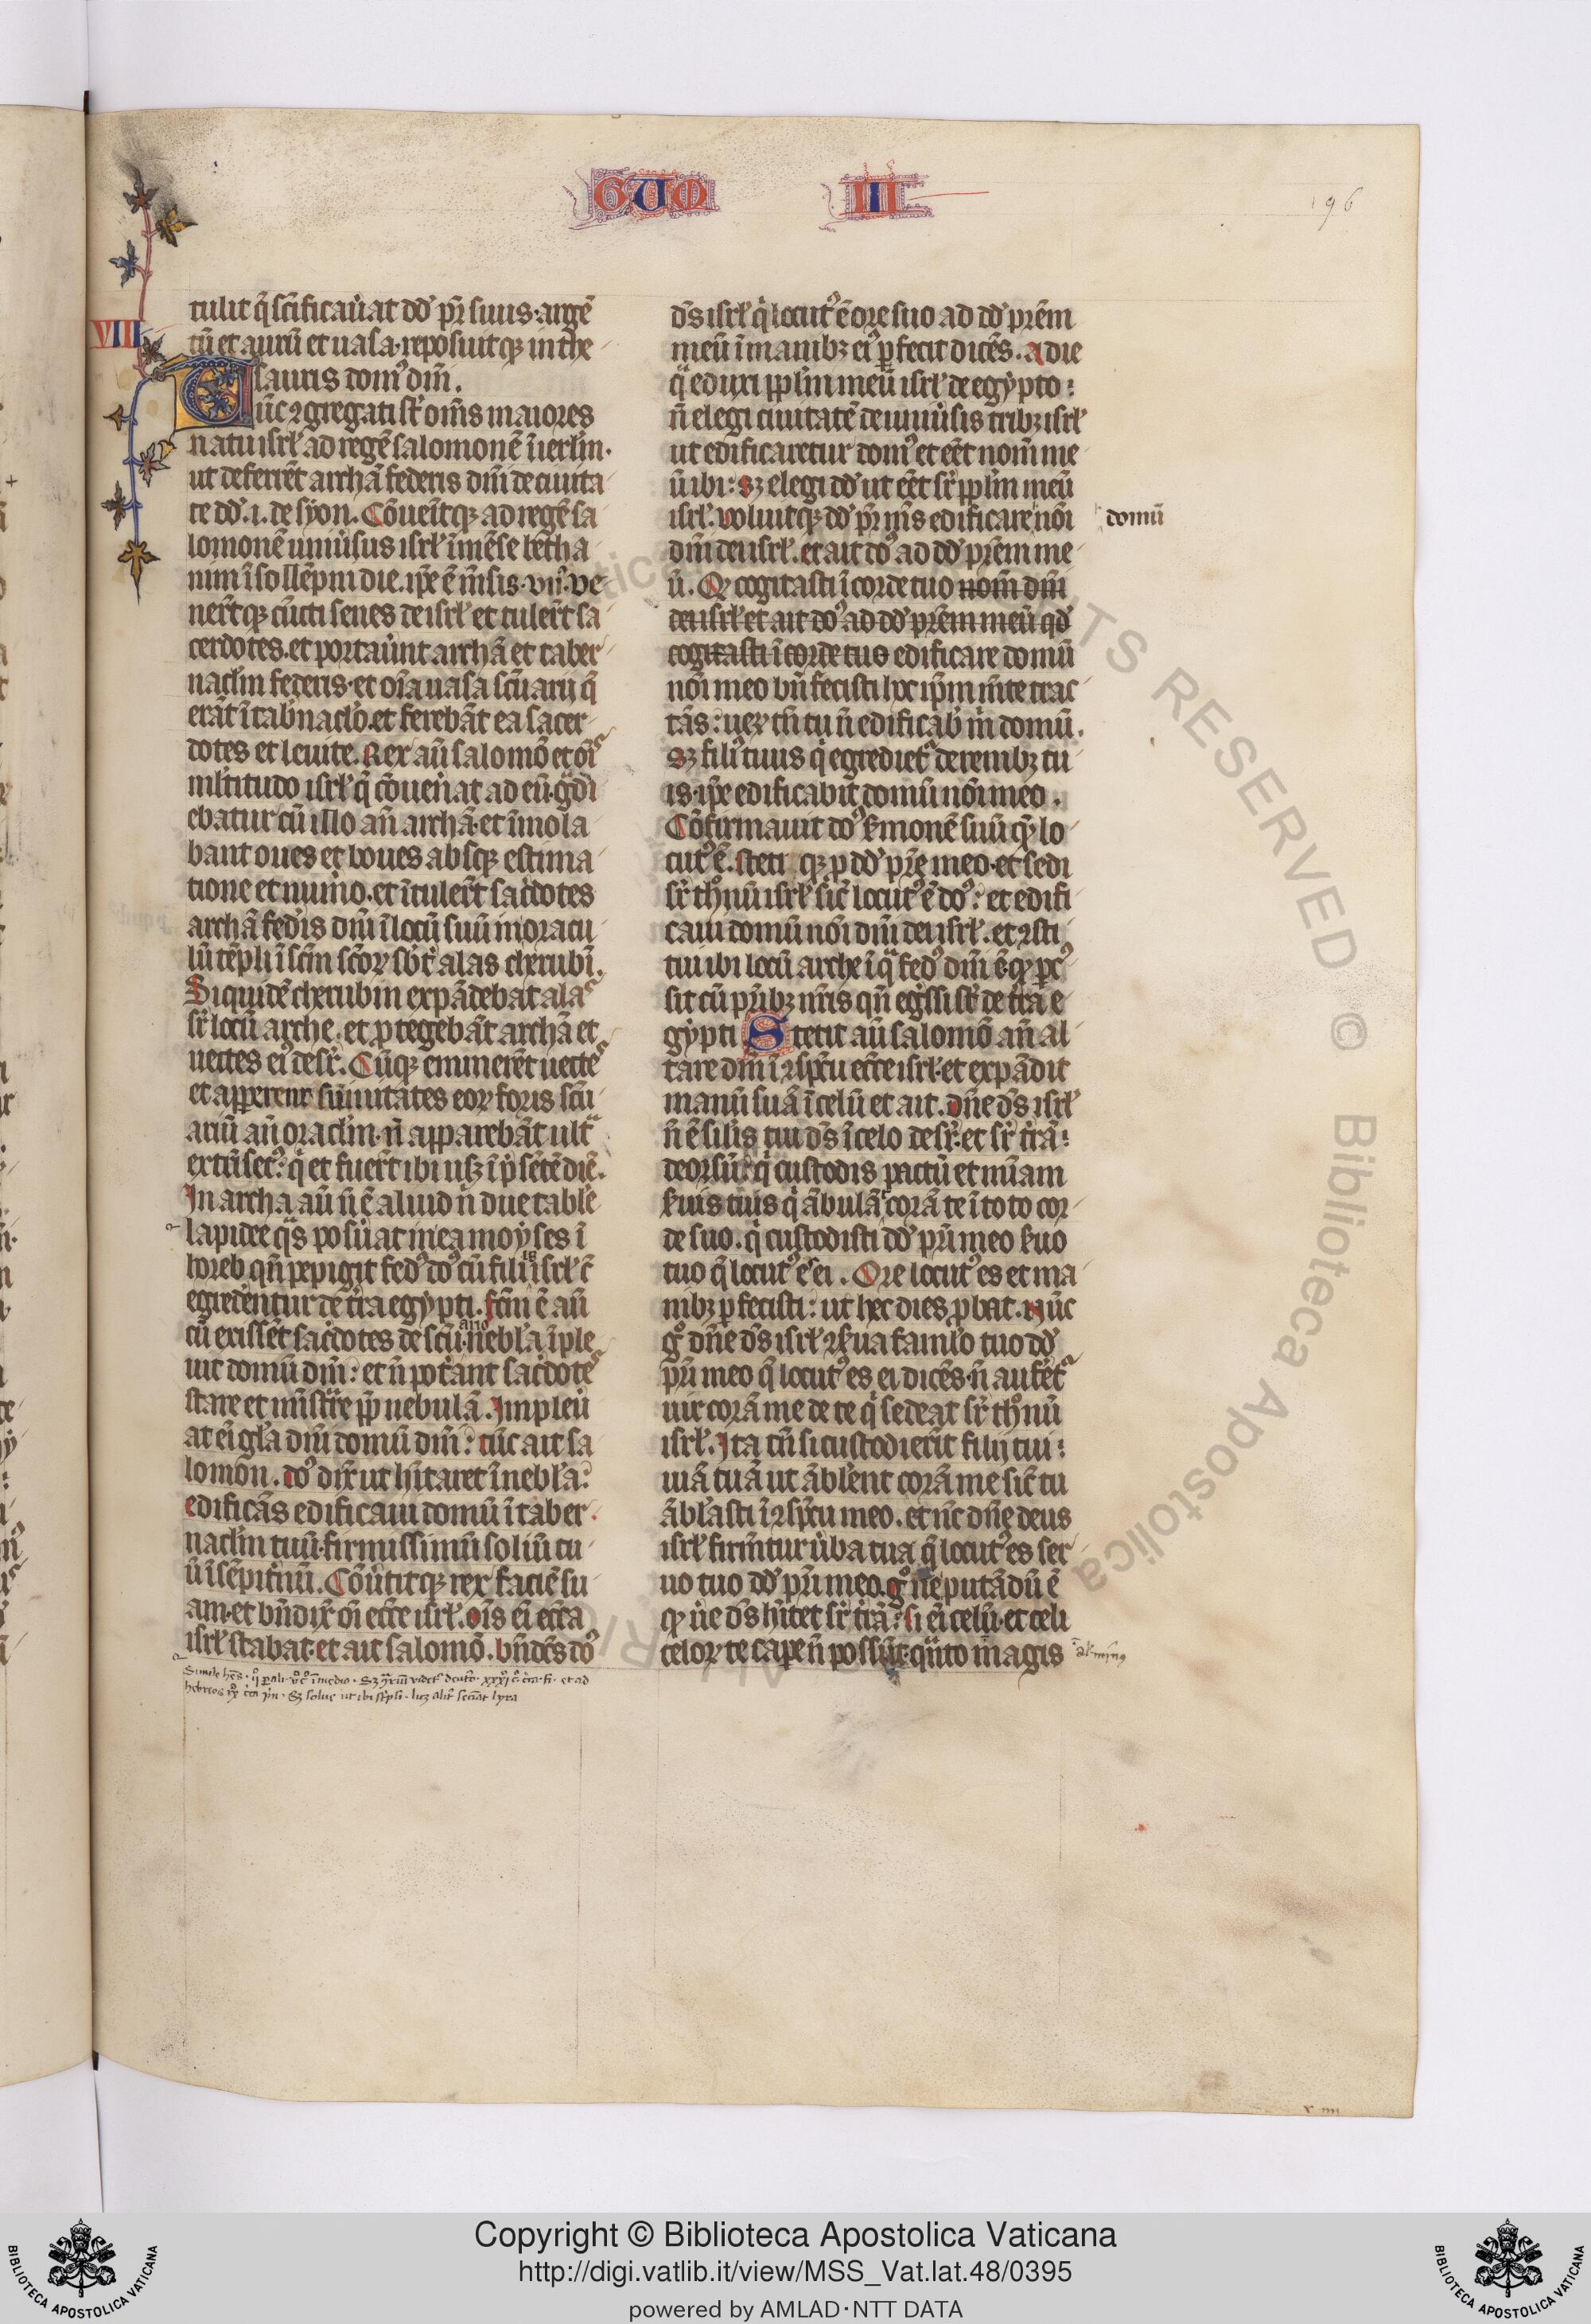 GUM III
196
VIII
tulit q̄ sc̄ificau̾at dd̾ pr̄ suus. argē
tū et aurū et uasa. reposuitqʒ in the
sauris dom̾ dn̄i.
Tūc ꝯgregati st̄ om̄s maiores
natu isrł ad regē salomonē ī ierłm.
ut deferrēt archā federis dn̄i de ciuita
te dd̾. i. de syon. Cōuen̄tqʒ ad regē sa
lomonē uniu̾sus isrł ī mēse betha
nim ī sollēpni die. ip̄e ē m̄sis. vii̾. Ve
ner̄tqʒ cūcti senes de isrł et tuler̄t sa
cerdotes. et portau̾unt archā et taber
nacłm federis. et oīa uasa sc̄uarij q̄
erāt ī tab̾nacło. et ferebāt ea sacer
dotes et leuite. Rex aū salomō et oīs
mltitudo isrł q̄ cōuen̾at ad eū. g̾di
ebatur cū illo an̄ archā. et īmola
bant oues et boues absqʒ estima
tione et num̾o. et ītuler̄t sac̾dotes
archā fed̾is dn̄i ī locū suū in oracu
lū tēpli ī sc̄m sc̄oꝝ sb̾t̾ alas cherubī.
Siquidē cherubin expādebat alas
sr̄ locū arche. et ꝓtegebāt archā et
uectes ei̾ desr̄. Cūqʒ eminerēt uectes
et apperent sūmitates eoꝝ foris sc̄u
ariū an̄ oracłm. n̄ apparebāt ult̾
extrīsec̾. q̾ et fuer̄t ibi usqʒ ī p̄sētē diē.
In archa aū n̄ ē aliud n̾ due table
lapidee q̾s posu̾at in ea moyses ī
horeb qn̄ pepigit fed̾ do̾ cū filiis isrł c̄
egredentur de t̾ra egypti. fc̄m ē aū
cū exissēt sac̾dotes de sc̄uario. nebła īple
uit domū dn̄i: et n̄ pot̾ant sac̾dotes
stare et mīstrare pp̄ nebulā. Impleu̾
at eī gła dn̄i domū dn̄i: tūc ait sa
lomon. do̾ dix̾ ut hītaret ī nebła:
edificās edificaui domū ī taber
nacłm tuū. firmissimū soliū tu
ū ī sēpit̾nū. Cōu̾titqʒ rex faciē su
am. et bn̄dix̾ oī ecc̄e isrł. oīs eī ecc̄a
isrł stabat. et ait salomō. bn̄dc̄s do̾
Simile hēs. ii̾ paral. v̾ c̾ ī medio. Sʒ ꝯriū videt̾ deut̾o. xxxi̾ c̾. circa fi. et ad
hebreos ix̾ circa prin. Sʒ solue ut ibi sc̾psi. licʒ alit̾ senciat lyra
ds̄ isrł q̾ locut̾ ē ore suo ad dd̾ pr̄em
meū ī manibʒ ei̾ ꝑfecit dicēs. a die
q̾ eduxi ppłm meū isrł de egypto:
n̄ elegi ciuitatē de uniu̾sis tribʒ isrł
ut edificaretur dom̾ et eēt nom̄ me
ū ibi: sʒ elegi dd̾ ut eēt sr̄ ppłm meū
isrł. uoluitqʒ dd̾ pr̄ m̄s edificare nōi
domū
dn̄i dei isrł. et ait do̾ ad dd̾ pr̄em me
ū. Qꝫ cogitasti ī corde tuo nom̄ dn̄i
dei isrł et ait do̾ ad dd̾ pr̄em meū qd̾
cogitasti ī corde tuo edificare domū
nōi meo bn̄ fecisti hoc ip̄m m̄te trac
tās: ueꝝ tn̄ tu n̄ edificab̾ m̾ domū.
sʒ fili̾ tuus q̾ egrediet̾ de renibʒ tu
is. ip̄e edificabit domū nōi meo.
Cōfirmauit do̾ s̾monē suū quē lo
cut̾ ē. steti qʒ ꝓ dd̾ pr̄e meo. et sedi
sr̄ th̾onū isrł sic̄ locut̾ ē do̾: et edifi
caui domū nōi dn̄i dei isrł. et ꝯsti
tui ibi locū arche ī q̾ fed̾ dn̄i ē. qꝫ pc̾
sit cū pr̄ibʒ nr̄is qn̄ eg̾ssi st̄ de t̾ra e
gypti Stetit aū salomō an̄ al
tare dn̄i ī ꝯspc̄tu ecc̄e isrł. et expādit
manū suā ī celū et ait. dn̄e ds̄ isrł
n̄ ē silis tui ds̄ ī celo desr̄. et sr̄ t̾rā:
deorsū: q̾ custodis pactū et mīam
s̾uis tuis q̾ ābulāt corā te ī toto cor
de suo. q̾ custodisti dd̾ pr̄i meo s̾uo
tuo q̄ locut̾ es ei. Ore locut̾ es et ma
nibʒ ꝑfecisti: ut hec dies ꝓbat. Nūc
g̾ dn̄e ds̄ isrł ꝯs̾ua famło tuo dd̾
pr̄i meo q̄ locut̾ es ei dicēs. n̄ aufēt̾
uir corā me de te q̾ sedeat sr̄ th̾onū
isrł. Ita tn̄ si custodierīt filij tui:
uiā tuā ut āblent corā me sic̄ tu
āblasti ī ꝯspc̄tu meo. et nc̄ dn̄e deus
isrł firm̄tur u̾ba tua q̄ locut̾ es ser
uo tuo dd̾ pr̄i meo. g̾ ne putādū ē
qꝫ u̾e ds̄ hītet sr̄ t̾rā: si eī celū. et celi
celoꝝ te cape n̄ possūt. q̾nto magis
al. min̾
Copyright © Biblioteca Apostolica Vaticana
http://digi.vatlib.it/view/MSS_Vat.lat.48/0395
powered by AMLAD·NTT DATA
BIBLIOTECA APOSTOLICA VATICANA
BIBLIOTECA APOSTOLICA VATICANA